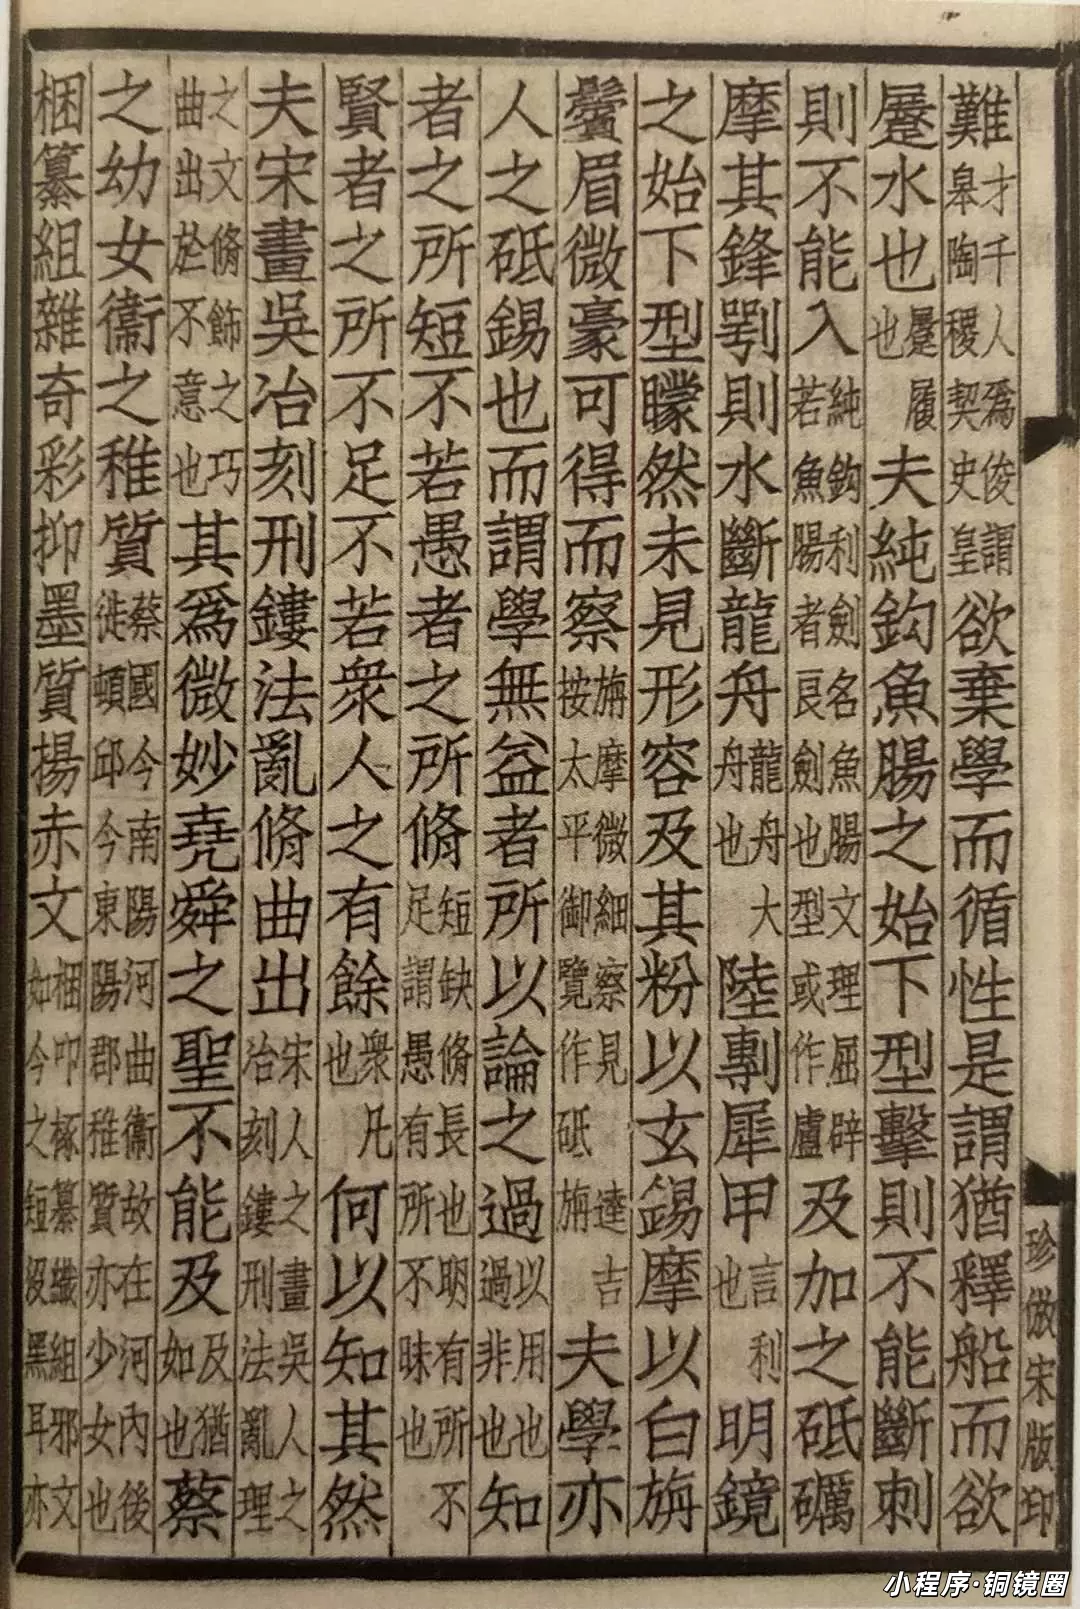 難才千人爲俊謂皋陶稷契史皇欲棄學而循性是謂猶釋船而欲
蹷水也蹷履也夫純鈎魚腸之始下型擊則不能斷刺
則不能入純鈎利劍名魚腸文理屈辟若魚腸者良劍也型或作盧及加之砥礪
摩其鋒剄則水斷龍舟龍舟大舟也陸剸犀甲言利也明鏡
之始下型矇然未見形容及其粉以玄錫摩以白旃
鬢眉微豪可得而察旃摩微細察見按太平御覽作砥旃達吉夫學亦
人之砥錫也而謂學無益者所以論之過以用也過非也知
者之所短不若愚者之所脩短缺脩長也明有所不足謂愚有所不昧也
賢者之所不足不若衆人之有餘衆凡也何以知其然
夫宋畫吳冶刻刑鏤法亂脩曲出宋人之畫吳人之冶刻鏤刑法亂理
之文脩飾之巧曲出於不意也其爲微妙堯舜之聖不能及及猶如也蔡
之幼女衞之稚質蔡國今南陽河曲衞故在河內後徙頓邱今東陽郡稚質亦少女也
梱纂組雜奇彩抑墨質揚赤文梱叩椓纂織組邪文如今之短沒黑耳亦
珍倣宋版印
小程序·铜镜圈